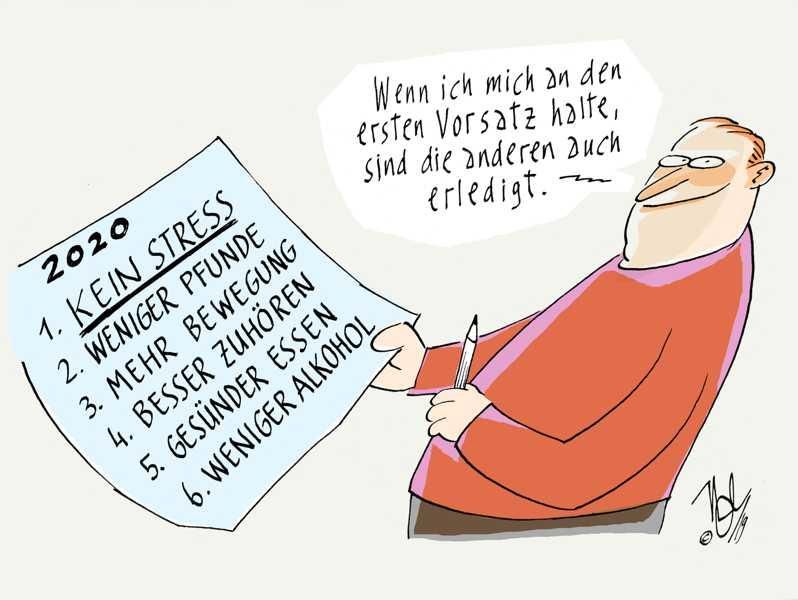 Wenn ich mich an den
ersten Vorsatz halte,
sind die anderen auch
erledigt.
2020
1. KEIN STRESS
2. WENIGER PFUNDE
3. MEHR BEWEGUNG
4. BESSER ZUHÖREN
5. GESÜNDER ESSEN
6. WENIGER ALKOHOL